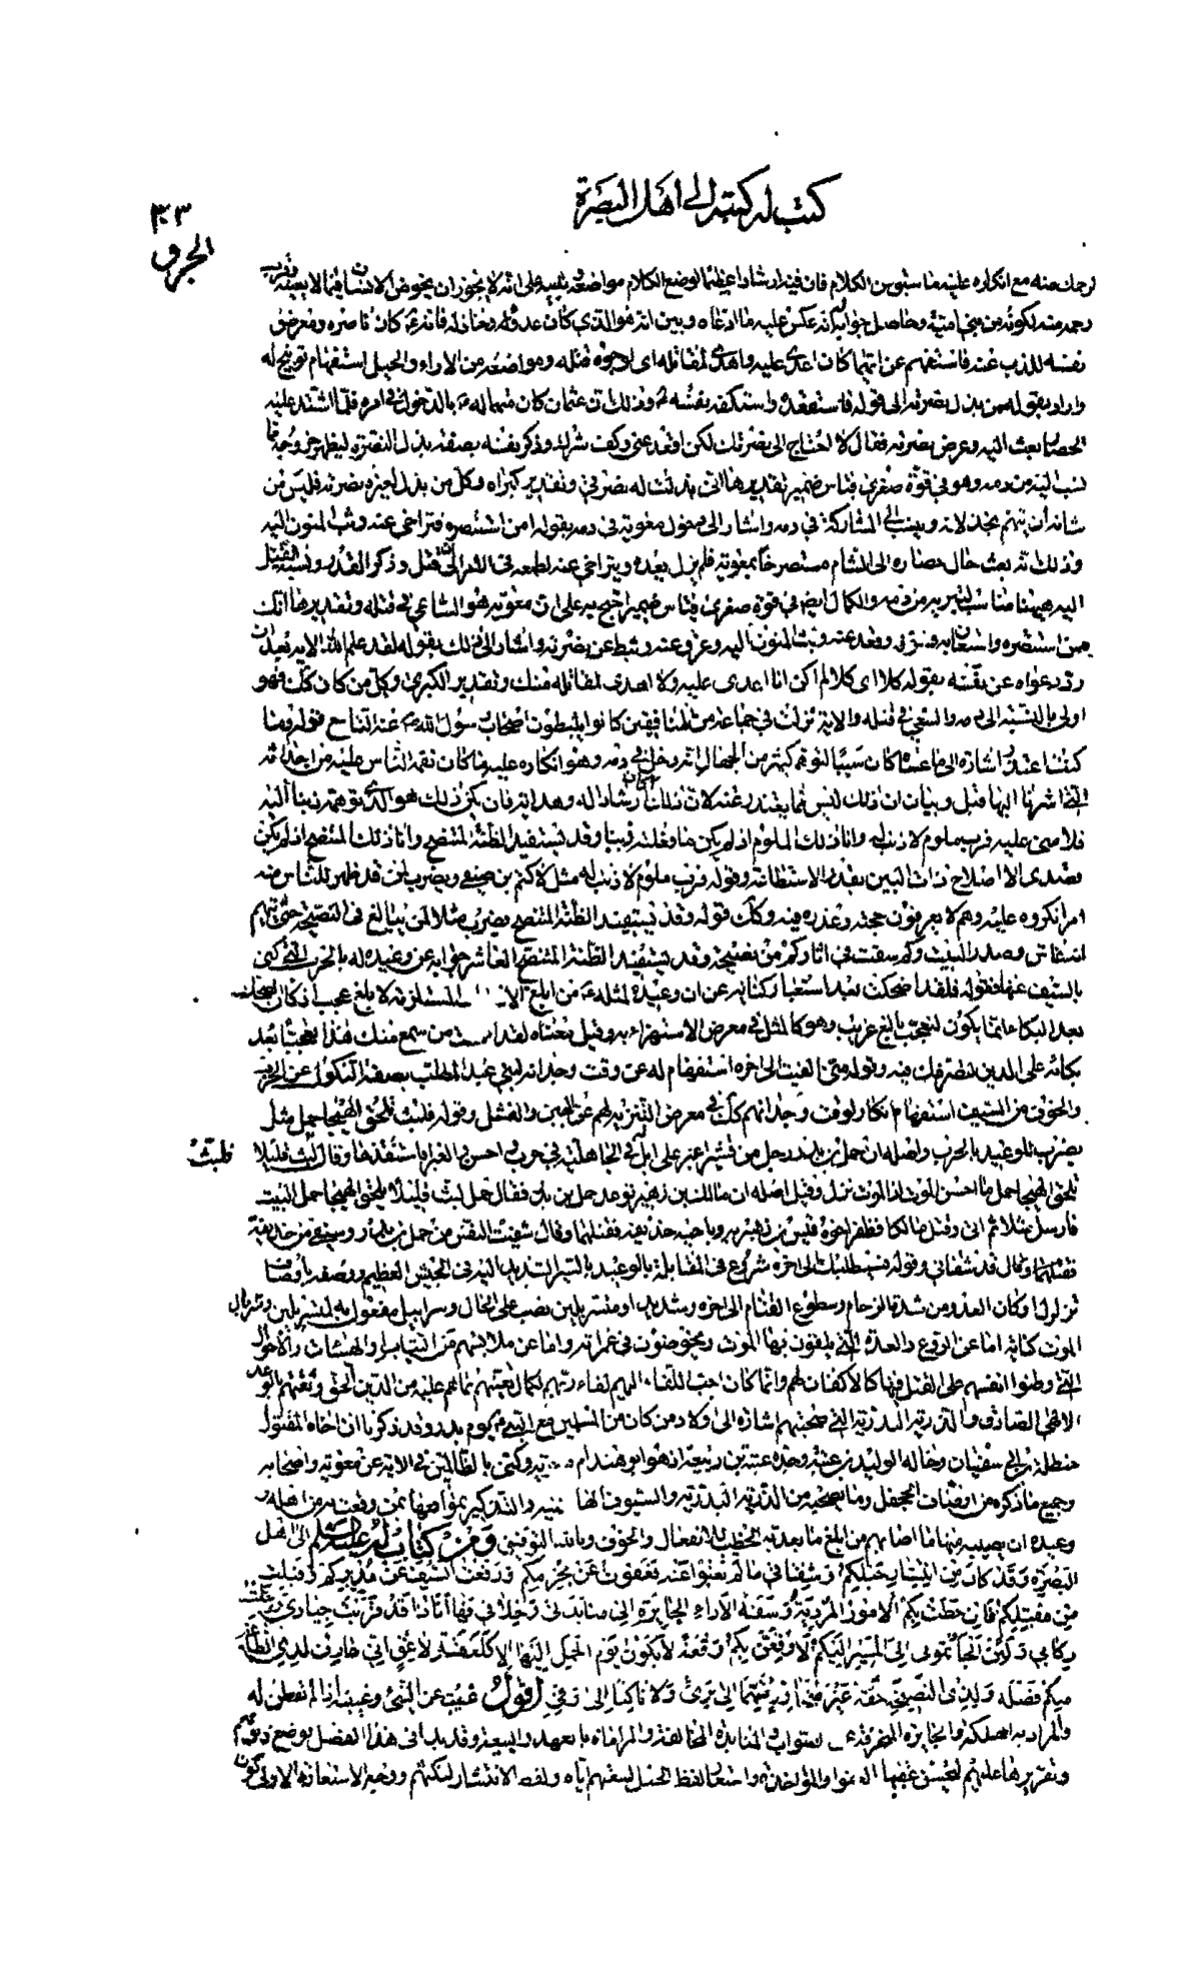 كتب له كتبه الى اهل البصرة
٣٠٣
الجزء
رحمك منه مع انكاره عليه ما سبق من الكلام فان فيه ارشادا عظيما لوضع الكلام مواضعه وتنبيه على انه لا يجوز ان يخوض الانسان فيما لا يعنيه
رحمه منه لكونه من بني امية وحاصل جوابه انه عكس عليه ما ادعاه وبين انه هو الذي كان عدوه وخاذله فانه كان ناصره ومعرض
نفسه للذب عنه فاستفهم عن ايهما كان اعدى عليه واهدى لمقاتله اى لوجوه قتله ومواضعه من الاراء والحيل استفهام توبيخ له
واراد بقوله من بذل نصرته الى قوله فاستقعده واستكفه نفسه وذلك ان عثمان كان متهما له بالدخول في امره فلما اشتد عليه
الحصار بعث اليه وعرض نصرته فقال لا احتاج الى نصرتك لكن اقعد عني وكف شرك وذكر نفسه بصفة بذل النصرة ليظهر خروجه مما
نسب اليه من دمه وهو في قوة صغرى قياس ضمير تقديرها انى بذلت له نصرتي وتقدير كبراه وكل من بذل لغيره نصرته فليس من
شانه أن يتهم بخذلانه وينسب الى المشاركة في دمه واشار الى دخول معوية في دمه بقوله امن استنصره فتراخى عنه وبث المنون اليه
وذلك انه بعث حال حصاره الى الشام مستصرخا بمعوية فلم يزل يعده ويتراخى عنه لطمعه في الامر الى ان قتل وذكر القدر ونسبة القتل
اليه هيهنا مناسب لتبريه من دمه والكلام ايضا في قوة صغرى قياس ضمير احتج به على ان معوية هو الساعي في قتله وتقديرها انك
ممن استنصره واستعان به وتربص وقعد عنه وبث المنون اليه
رد دعواه عن نفسه بقوله كلا اى كلا لم اكن انا اعدى عليه ولا اهدى لمقاتله منك وتقدير الكبرى وكل من كان كك فهو
اولى بالنسبة الى دمه والسعي في قتله والاية نزلت في جماعة من المنافقين كانوا يثبطون اصحاب رسول الله عنه التاسع قوله وما
كنت اعتذر اشارة الى ما عساه كان سببا لتوهم كثير من الجهال انه دخل في دمه وهو انكاره عليه ما كان نقمه الناس عليه من احداثه
التى اشرنا اليها قبل وبيان ان ذلك ليس مما يعتذر عنه لان ذلك كان ارشادا له وهداية فان يكن ذلك هو الذي توهمه ذنبا اليه
فلا مضى عليه فرب ملوم لا ذنب له وانا ذلك الملوم اذ لم يكن ما فعلته ذنبا وقد يستفيد الظنة المتنصح وانا ذلك المتنصح اذ لم يكن
قصدي الا اصلاح ذات البين بقدر الاستطاعة وقوله فرب ملوم لا ذنب له مثل لاكثم بن صيفي ويضرب لمن قد ظهر للناس منه
امر انكروه عليه وهم لا يعرفون حجته وعذره فيه وكك قوله وقد يستفيد الظنة المتنصح يضرب مثلا لمن يبالغ في النصيحة حتى يتهم
انه غاش وصدر البيت وكم سقت في اثاركم من نصيحة وقد يستفيد الظنة المتنصح العاشر جوابه عن وعيده له بالحرب التى كنى
بالسيف عنها فقوله فلقد اضحكت بعد استعبار كناية عن ان وعيده لمثله من ابلغ
بعد البكاء انما يكون لتعجب بالغ غريب وهو كالمثل في معرض الاستهزاء به وقيل معناه لقد من سمع منك هذا تعجبا بعد
بكائه على الدين لتصرفك فيه وقوله متى الفيت الى اخره استفهام له عن وقت وجدانه لبني عبد المطلب بصفة النكول عن الحرب
والخوف من السيف استفهام انكار لوقت وجدانهم كك في معرض التنزيه لهم عن الجبن والفشل وقوله فلبث يلحق الهيجا حمل مثل
يضرب للوعيد بالحرب واصله ان حمل بن بدر رجل من قشير اغير على ابل له في الجاهلية في حرب داحس والغبراء فاستنقذها وقال لبث قليلا
فلبث
يلحق الهيجا حمل ما احسن الموت اذا الموت نزل وقيل اصله ان مالك بن زهير توعد حمل بن بدر فقال حمل لبث قليلا يلحق الهيجا حمل البيت
فارسل مثلا ثم اتى وقتل مالكا فظفر اخوه قيس بن زهير به وباخيه حذيفة فقتلهما وقال شفيت النفس من حمل بن بدر وسيفي من حذيفة
قد شفاني وقوله فسيطلبك الى اخره شروع في المقابلة بالوعيد بالسير الشديد اليه في الجيش العظيم ووصفه باوصاف
تزلزل اركان العدو من شدة الزحام وسطوع القتام الى اخره وشديدا ومتسربلين نصب على الحال وسرابيل مفعول به لمتسربلين وسربال
الموت كناية اما عن الدروع والعدة التي يلقون بها الموت ويخوضون في غمراته واما عن ملابستهم من الثياب او الهيئات والاحوال
التى وطنوا انفسهم على القتل فيها كالاكفان لهم وانما كان احب اللقاء اليهم لقاء ربهم لكمال يقينهم بما هم عليه من الدين الحق وثقتهم بالوعد
الالهي الصادق والذرية البدرية التي صحبتهم اشارة الى اولاد من كان من المسلمين مع النبي يوم بدر وقد ذكرنا ان اخاه المقتول
حنظلة بن ابي سفيان وخاله الوليد بن عتبة وجده عتبة بن ربيعة اذ هو ابو هند ام معوية وكنى بالظالمين في الاية عن معوية واصحابه
وجميع ما ذكره من اوصاف الجحفل وما يصحبه من الذرية البدرية والسيوف الهاشمية والتذكير بمواضعها بمن وقعت به من اهله
وعيده ان يصيبه منها ما اصابهم من ابلغ ما يعد به الخطيب للانفعال والخوف وبالله التوفيق ومن كتاب له عليه السلم الى اهل
البصرة وقد كان من انتشار حبلكم وشقاقي ما لم تغبوا عنه فعفوت عن مجرمكم ورفعت السيف عن مدبركم وقبلت
من مقبلكم فان خطت بكم الامور المردية وسفه الاراء الجائرة الى منابذتي وخلافي فها انا ذا قد قربت جيادي ورحلت
ركابي ولئن الجأتموني الى المسير اليكم لاوقعن بكم وقعة لا يكون يوم الجمل اليها الا كلعقة لاعق مع اني عارف لذي الطاعة
منكم فضله ولذي النصيحة حقه غير متجاوز متهما الى بري ولا ناكثا الى وفي اقول غبت عن الشئ وغبيته اذا لم تفطن له
والمردية المهلكة والجايرة المنحرفة عن الصواب والمنابذة المخالفة والمراماة بالعهد والبيعة وقد بدا في هذا الفصل بوضع ذنوبهم
وتقريرها عليهم ليحسن عقيبها العفو او المؤاخذة واستعار لفظ الحبل لبيعتهم اياه ولفظ الانتشار لنكثهم ووجه الاستعارة الاولى كون